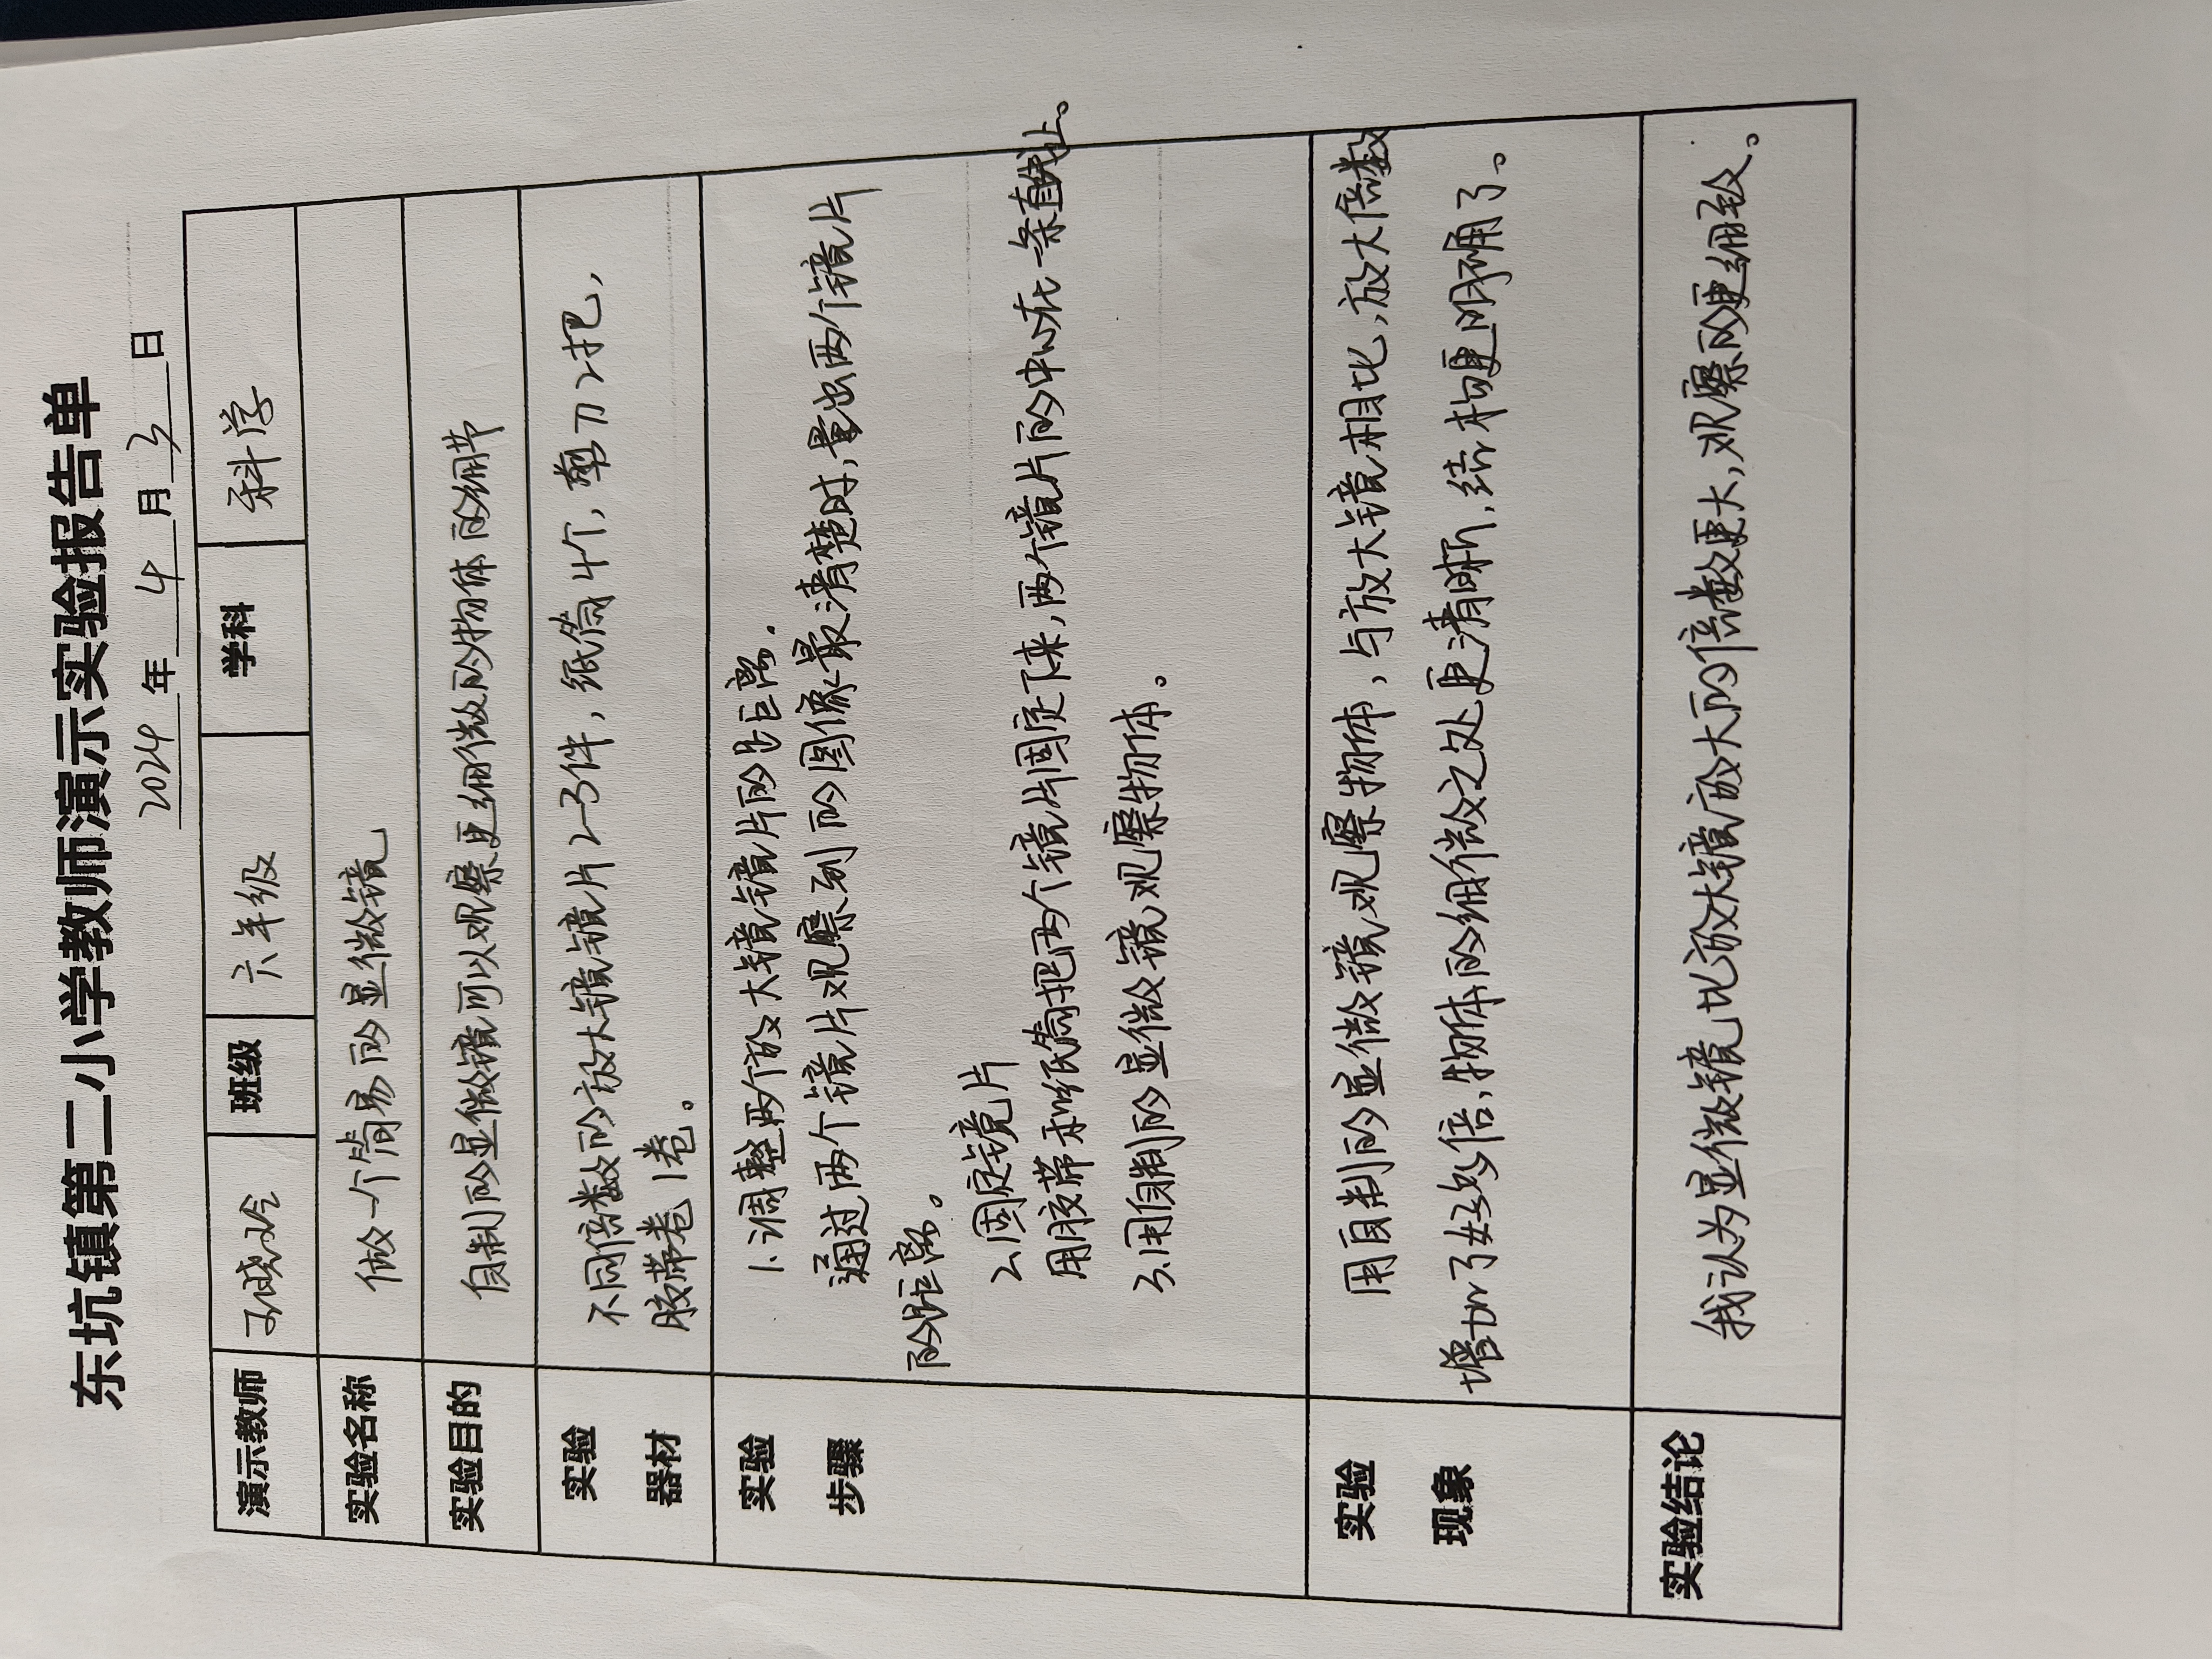 东坑镇第二小学教师演示实验报告单
2024 年 4 月 3 日
演示教师 孙晓玲 班级 六年级 学科 科学
实验名称 做一个简易的显微镜
实验目的 自制的显微镜可以观察更细微的物体的细节
实验 不同倍数的放大镜镜片2-3件，纸筒4个，剪刀2把，
器材 胶带卷1卷。
实验 1.调整两个放大镜镜片的距离.
步骤 通过两个镜片观察到的图像最清楚时，量出两个镜片
的距离。
2.固定镜片
用胶带和纸筒把两个镜片固定下来，两个镜片的中心在一条直线上。
3.用自制的显微镜观察物体。
实验 用自制的显微镜观察物体，与放大镜相比，放大倍数
现象 增加了好多倍，物体的细微之处更清晰，结构更明确了。
实验结论 我认为显微镜比放大镜放大的倍数更大，观察的更细致。